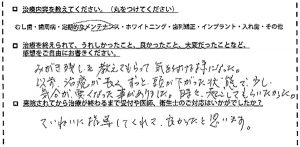 □ 治療内容を教えてください（丸をつけてください）
むし歯・歯周病・定期的なメンテナンス・ホワイトニング・歯列矯正・インプラント・入れ歯・その他
□ 治療を終えられて、うれしかったこと、良かったこと、大変だったことなど、感想をご自由にお書きください。
みがき残しを教えてもらって気を付ける様になった。
以前、治療が長く、ずっと頭が下がった状態で、少し
気分が悪くなった事がありました。時々、起こしてもらいたかった。
□ 来院されてから治療が終わるまで受付や医師、衛生士のご対応はいかがでしたか？
ていねいに指導してくれて、良かったと思います。